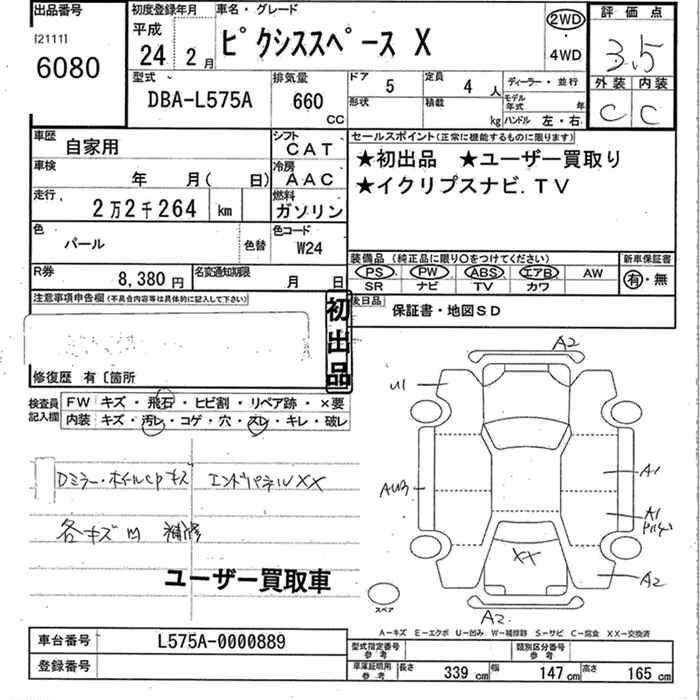 出品番号
[21111]
6080
初度登録年月
平成
24年 2月
車名・グレード
ピクシススペース X
2WD
・
4WD
評価点
3.5
外装 内装
C C
型式
DBA-L575A
排気量
660 CC
ドア 5
定員 4 人
形状
積載 kg
ディーラー・並行
モデル年式 年
ハンドル 左・右
車歴 自家用
シフト CAT
車検 年 月( 日)
冷房 AAC
走行 2万2千264 km
燃料 ガソリン
色 パール 色替
色コード W24
R券 8,380円
名変通知期限 月 日
セールスポイント(正常に機能するものに限ります)
★初出品 ★ユーザー買取り
★イクリプスナビ.TV
装備品 (純正品に限り○をつけてください)
PS PW ABS エアB AW
SR ナビ TV カワ
新車保証書
有・無
後日品
保証書・地図SD
注意事項申告欄(不具合内容等は具体的に記入して下さい)
初出品
修復歴 有〔箇所
検査員記入欄
FW キズ・飛石・ヒビ割・リペア跡・×要
内装 キズ・汚レ・コゲ・穴・スレ・キレ・破レ
Dミラー・ホイルCPキズ エンドパネルXX
各キズ凹 補修
ユーザー買取車
A2
U1
AU3
A1
A1
XX
A2
A2
スペア
A−キズ E−エクボ U−凹み W−補修跡 S−サビ C−腐食 XX−交換済
車台番号 L575A-0000889
登録番号
型式指定番号 参考
類別区分番号 参考
車庫証明用 参考
長さ 339 cm 幅 147 cm 高さ 165 cm